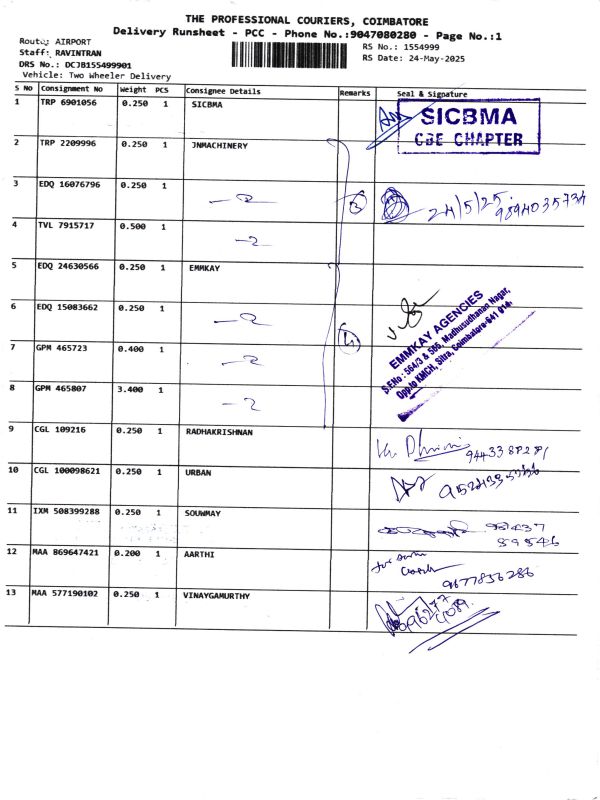 THE PROFESSIONAL COURIERS, COIMBATORE
Delivery Runsheet - PCC - Phone No.:9047080280 - Page No.:1
Route: AIRPORT
RS No.: 1554999
Staff: RAVINTRAN
RS Date: 24-May-2025
DRS No.: DCJB155499901
Vehicle: Two Wheeler Delivery
S No Consignment No Weight PCS Consignee Details Remarks Seal & Signature
1 TRP 6901056 0.250 1 SICBMA
SICBMA
CBE CHAPTER
2 TRP 2209996 0.250 1 JNMACHINERY
3 EDQ 16076796 0.250 1 3 24/5/25 9894035734
4 TVL 7915717 0.500 1
5 EDQ 24630566 0.250 1 EMMKAY
6 EDQ 15083662 0.250 1 4
EMMKAY AGENCIES
S.FNo : 564/3 & 565, Madhusudhanan Nagar,
Opp.to KMCH, Sitra, Coimbatore-641 014.
7 GPM 465723 0.400 1
8 GPM 465807 3.400 1
9 CGL 109216 0.250 1 RADHAKRISHNAN
10 CGL 100098621 0.250 1 URBAN
11 IXM 508399288 0.250 1 SOUWMAY
12 MAA 869647421 0.200 1 AARTHI for
9677856286
13 MAA 577190102 0.250 1 VINAYGAMURTHY